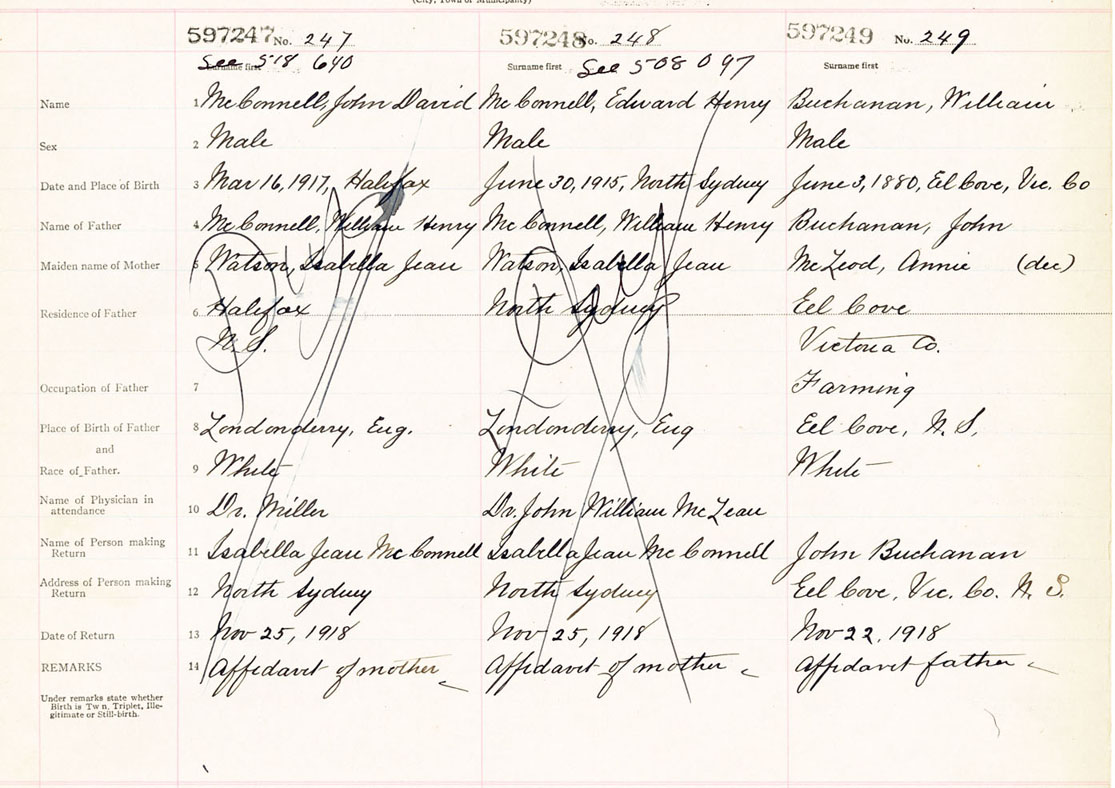 (City, Town or Municipality)
597247 No. 247 597248 No. 248 597249 No. 249
See 518 640 See 508 097
Surname first Surname first Surname first
Name 1 McConnell, John David McConnell, Edward Henry Buchanan, William
Sex 2 Male Male Male
Date and Place of Birth 3 Mar 16, 1917, Halifax June 30, 1915, North Sydney June 3, 1880, Eel Cove, Vic. Co
Name of Father 4 McConnell, William Henry McConnell, William Henry Buchanan, John
Maiden name of Mother 5 Watson, Isabella Jean Watson, Isabella Jean McLeod, Annie (dec)
Residence of Father 6 Halifax North Sydney Eel Cove
N.S. Victoria Co.
Occupation of Father 7 Farming
Place of Birth of Father 8 Londonderry, Eng. Londonderry, Eng Eel Cove, N.S.
and
Race of Father. 9 White White White
Name of Physician in attendance 10 Dr. Miller Dr. John William McLean
Name of Person making Return 11 Isabella Jean McConnell Isabella Jean McConnell John Buchanan
Address of Person making Return 12 North Sydney North Sydney Eel Cove, Vic. Co. N.S.
Date of Return 13 Nov 25, 1918 Nov 25, 1918 Nov 22, 1918
REMARKS 14 Affidavit of mother Affidavit of mother Affidavit father
Under remarks state whether
Birth is Twin, Triplet, Ille-
gitimate or Still-birth.
Dup
Dup